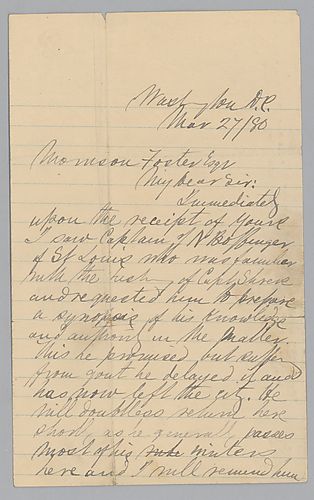 Washington D.C.
Mar 27/80
Morrison Foster Esqr
My Dear Sir:
Immediately
upon the receipt of yours
I saw Captain J N Bofinger
of St Louis who was familiar
with the history of Capt Shreve
and requested him to prepare
a synopsis of his knowledge
and authority in the matter.
This he promised, but suffering
from gout he delayed it and
has now left the city. He
will doubtless return here
shortly as he generally passes
most of his winters
here and I will remind him